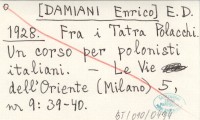 [DAMIANI Enrico] E.D.
1928. Fra i Tatra Polacchi.
Un corso per polonisti
italiani. – Le Vie
dell'Oriente (Milano) 5,
nr 9: 39-40.
BJ/010/0494